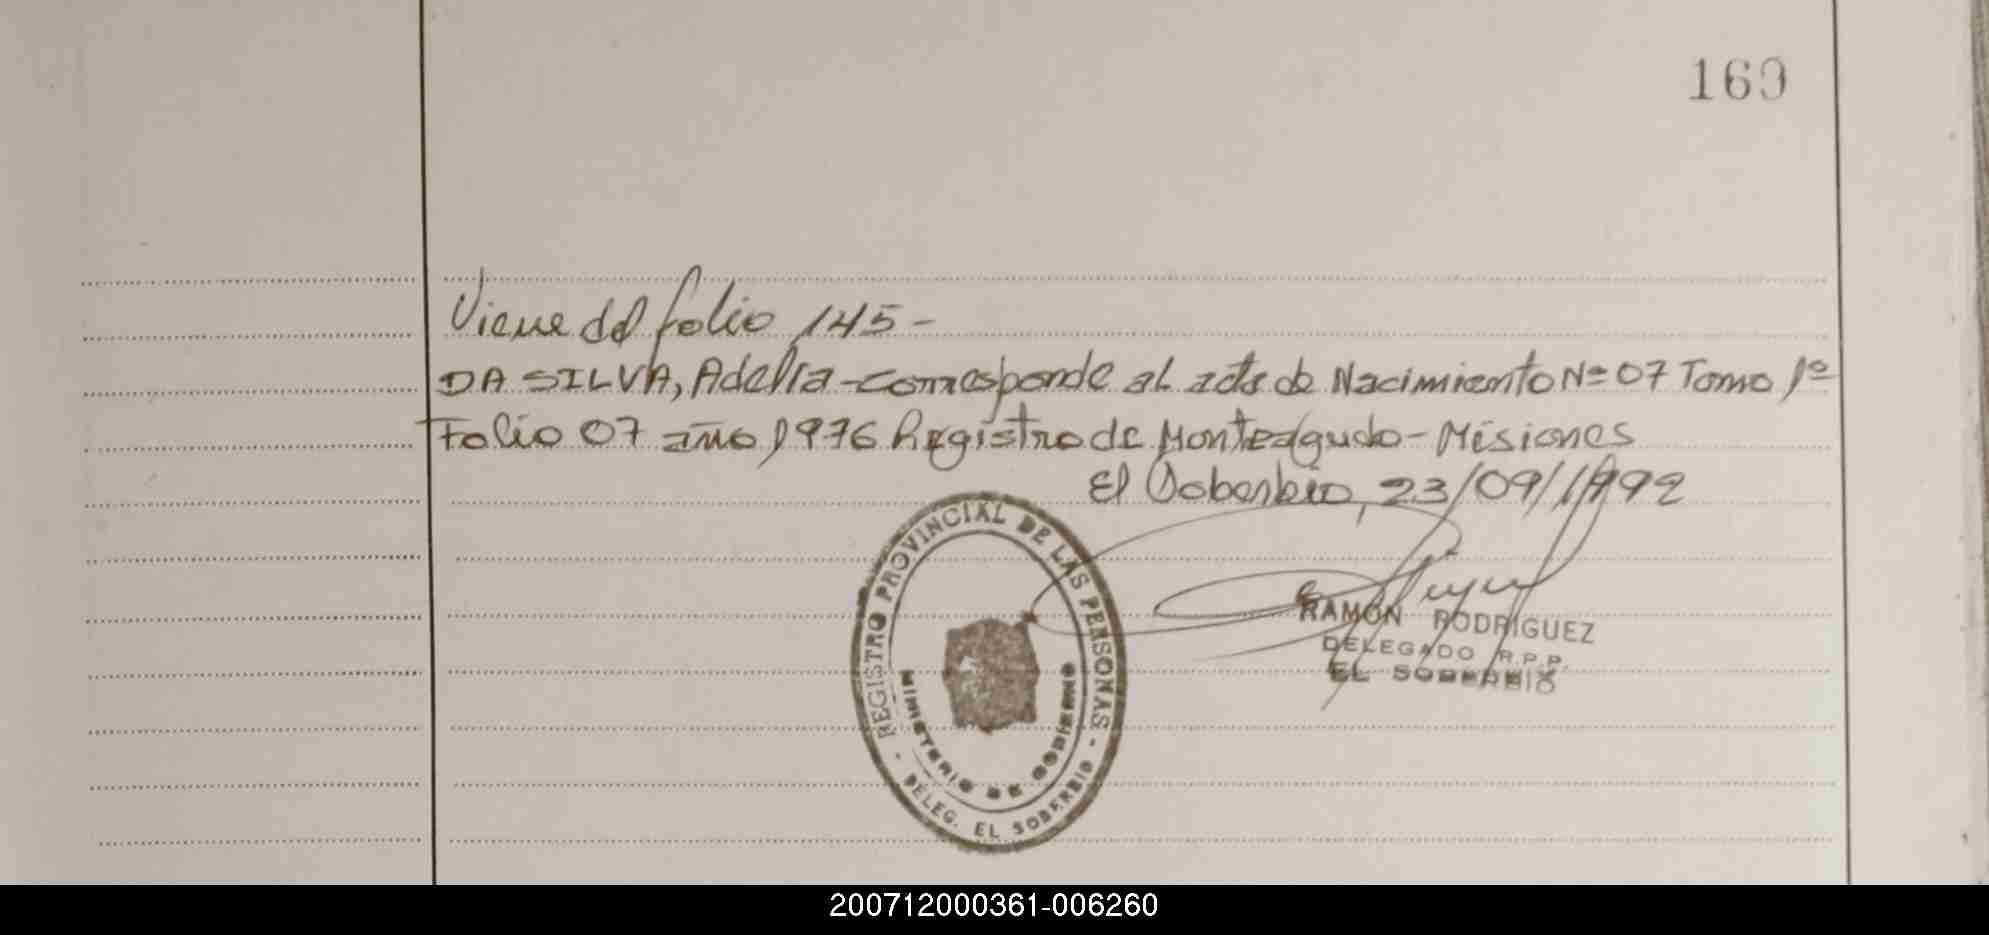 160
Viene del folio 145-
DA SILVA, Adelia - corresponde al acta de Nacimiento Nº 07 Tomo 1º
Folio 07 año 1976 Registro de Monteagudo - Misiones
El Soberbio, 23/09/1992
REGISTRO PROVINCIAL DE LAS PERSONAS
MINISTERIO DE GOBIERNO
- DELEG. EL SOBERBIO -
RAMON RODRIGUEZ
DELEGADO R.P.P.
EL SOBERBIO
200712000361-006260